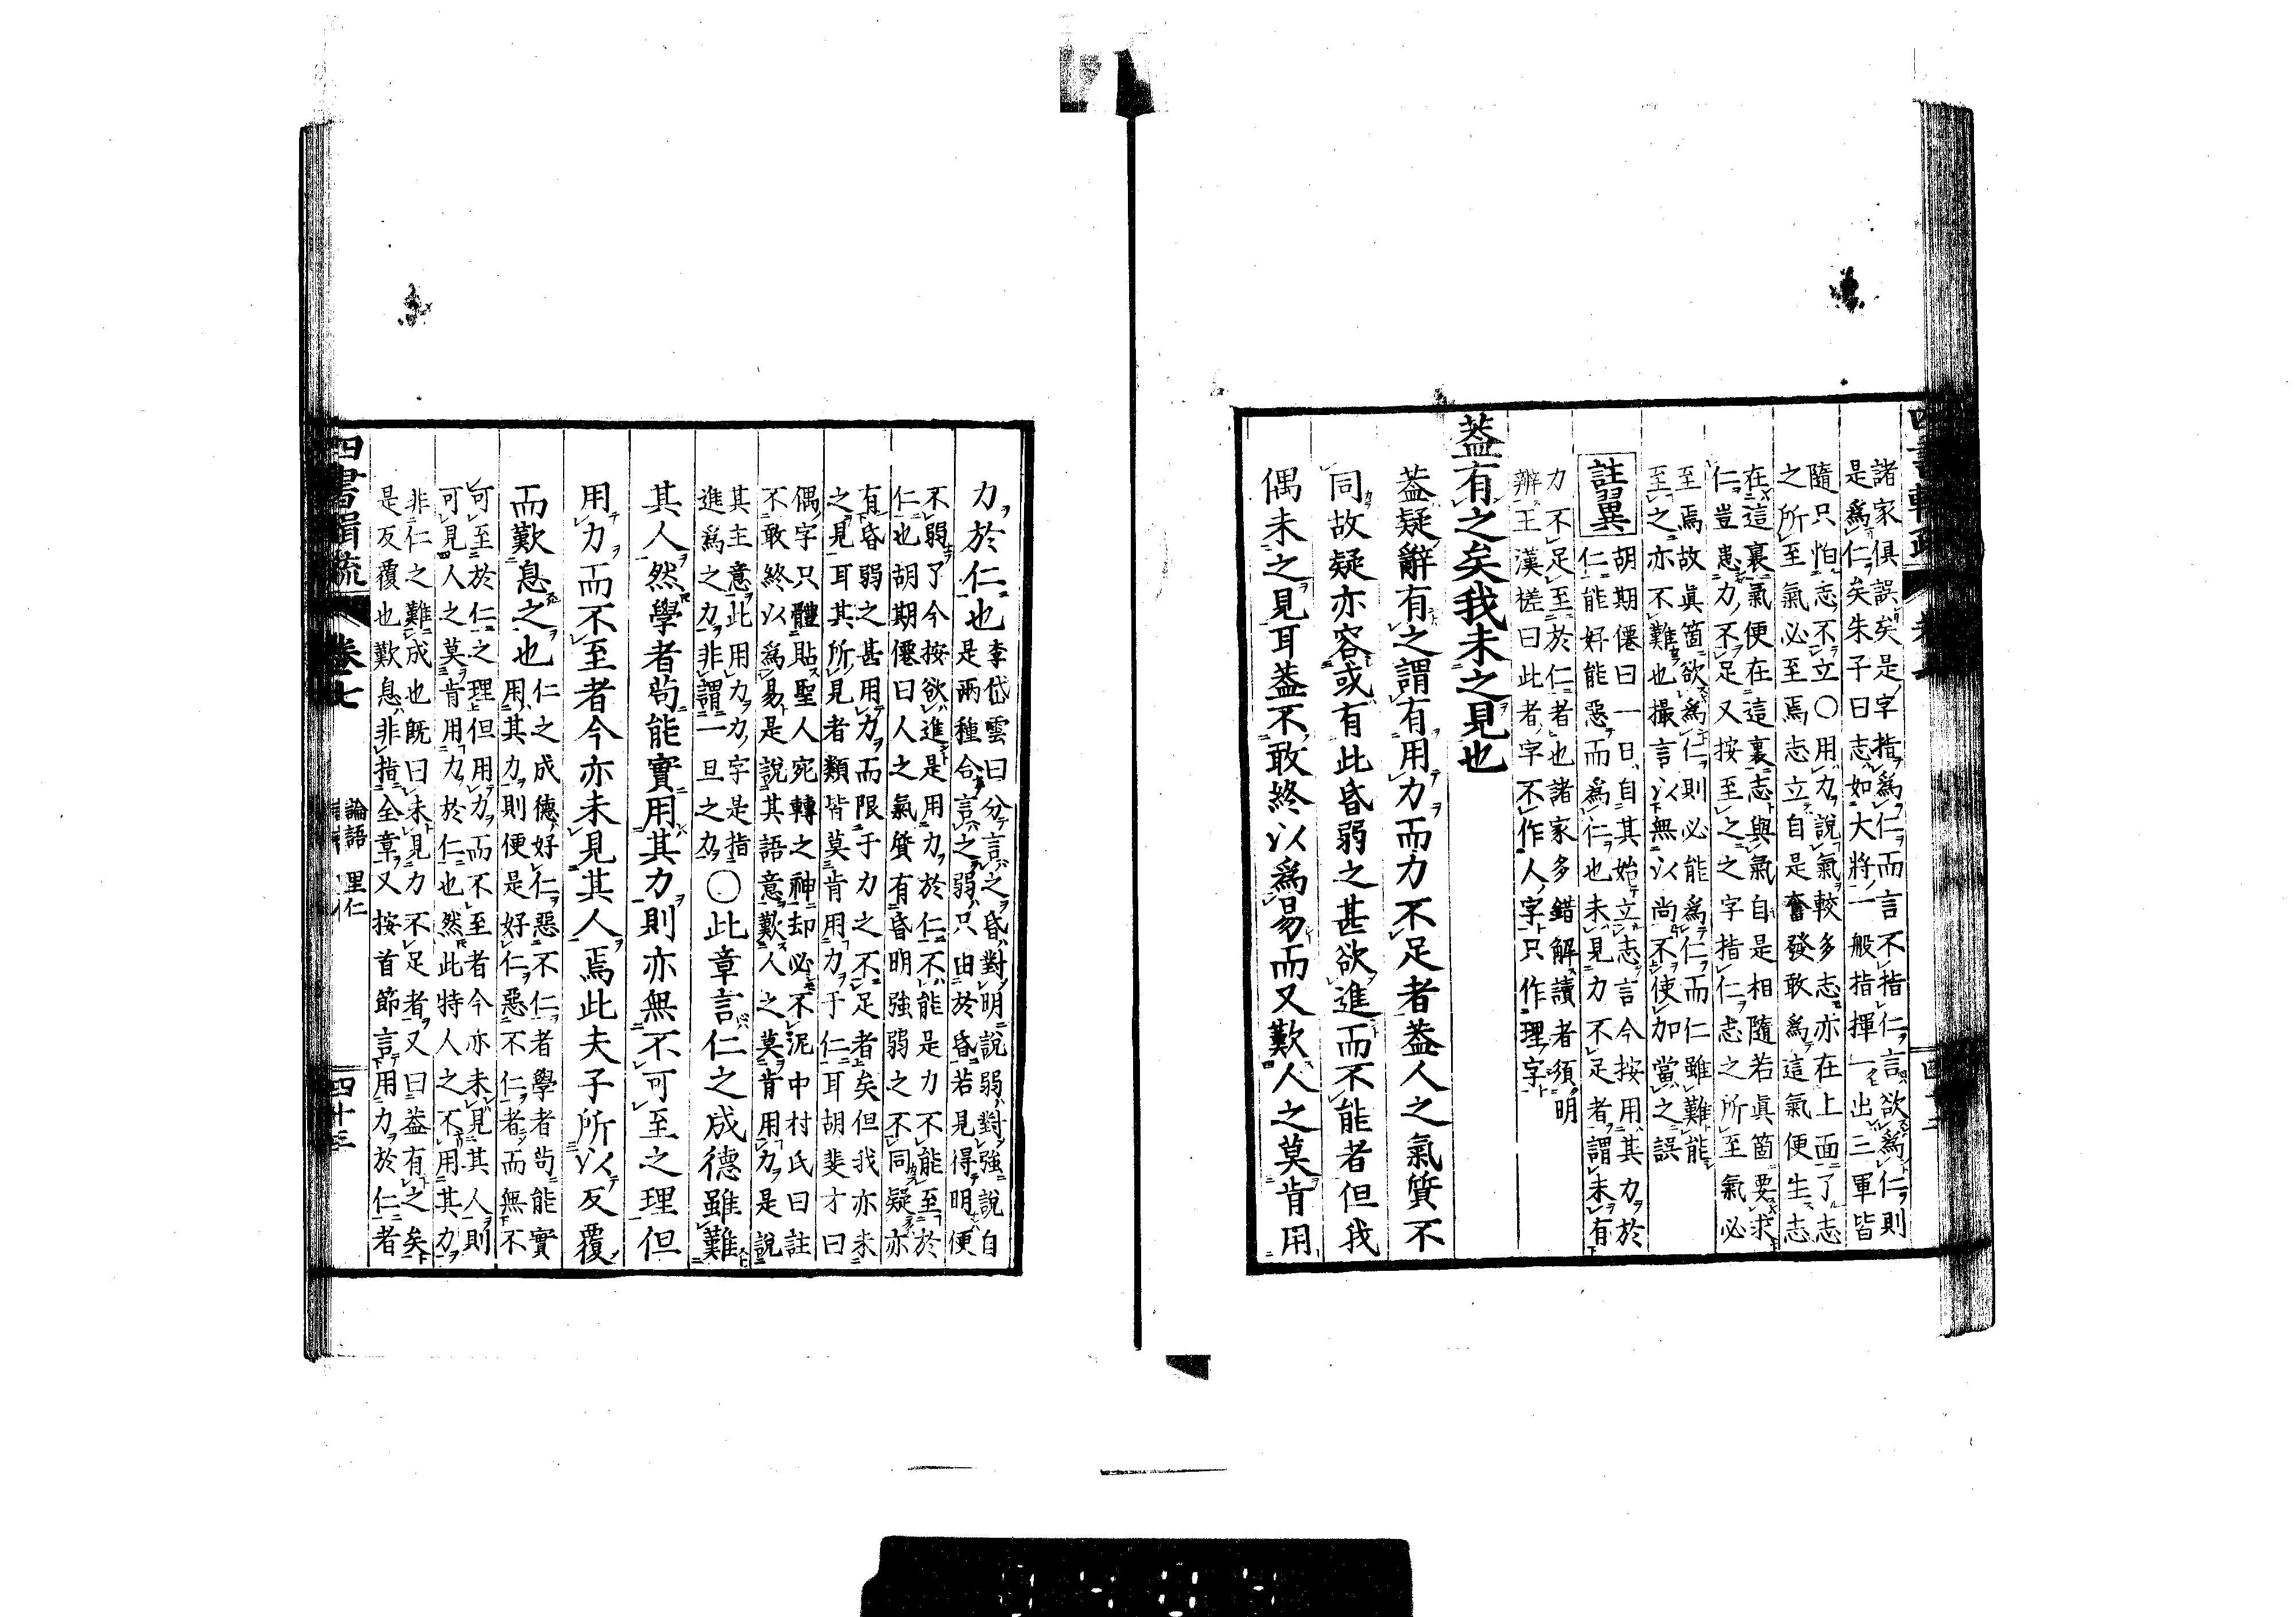 諸家俱誤矣是字指爲仁而言不指仁言欲爲仁則
是爲仁矣朱子曰志如大將一般指揮一出三軍皆
隨只怕志不立〇用力說氣較多志亦在上面了志
之所至氣必至焉志立自是奮發敢爲這氣便生志
在這裏氣便在這裏志與氣自是相隨若眞箇要求
仁豈患力不足又按至之之字指仁志之所至氣必
至焉故眞箇欲爲仁則必能爲仁而仁雖難能
至之亦不難也撮言以無以尚不使加當之誤
註翼
胡期僊曰一日自其始立志言今按用其力於
仁能好能惡而爲仁也未見力不足者謂未有
力不足至於仁者也諸家多錯解讀者須明
辨王漢槎曰此者字不作人字只作理字
蓋有之矣我未之見也
蓋疑辭有之謂有用力而力不足者蓋人之氣質不
同故疑亦容或有此昏弱之甚欲進而不能者但我
偶未之見耳蓋不敢終以爲易而又歎人之莫肯用
力於仁也
李岱雲曰分言之昏對明說弱對強說自
是兩種合言之弱只由於昏若見得明便
不弱了今按欲進是用力於仁不能是力不能至於
仁也胡期僊曰人之氣質有昏明強弱之不同疑亦
有昏弱之甚用力而限于力之不足者矣但我亦未
之見耳其所見者類皆莫肯用力于仁耳胡斐才曰
偶字只體貼聖人宛轉之神却必不泥中村氏曰註
不敢終以爲易是說其語意歎人之莫肯用力是說
其主意此用力力字是指
進爲之力非謂一旦之力
〇此章言仁之成德雖難
其人然學者苟能實用其力則亦無不可至之理但
用力而不至者今亦未見其人焉此夫子所以反覆
而歎息之也
仁之成德好仁惡不仁者學者苟能實
用其力則便是好仁惡不仁者而無不
可至於仁之理但用力而不至者今亦未見其人則
可見人之莫肯用力於仁也然此特人之不用其力
非仁之難成也既曰未見力不足者又曰蓋有之矣
是反覆也歎息非指全章又按首節言用力於仁者
四書輯疏
卷七
論語
里仁
四十三